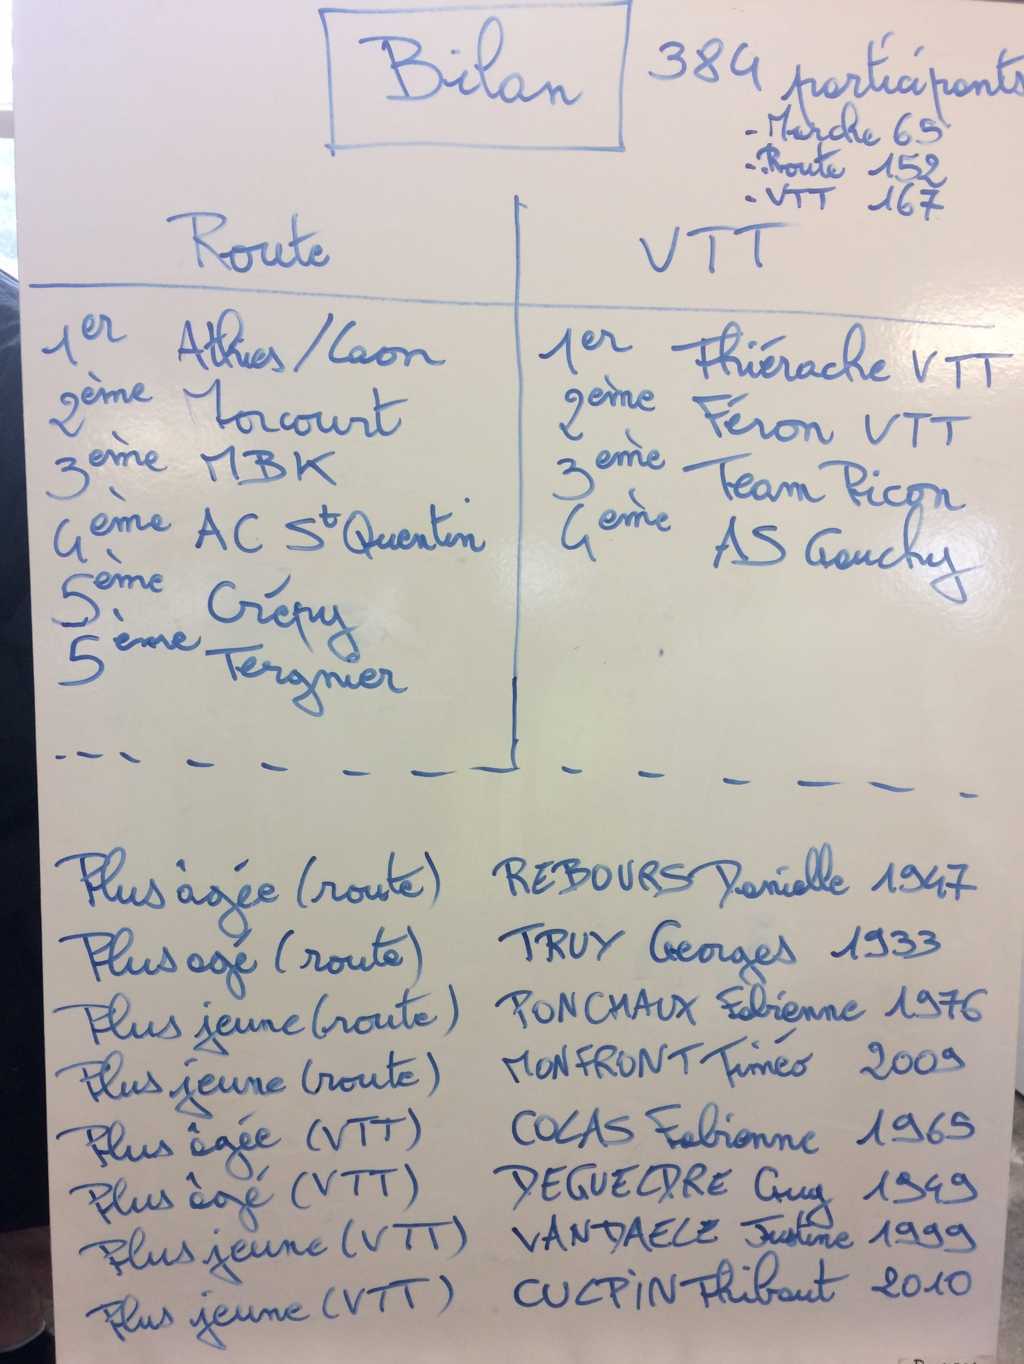 Bilan
384 participants
- Marche 65
- Route 152
- VTT 167
Route
VTT
1er Athies/Laon
2ème Morcourt
3ème MBK
4ème AC St Quentin
5ème Crépy
5ème Tergnier
1er Thiérache VTT
2ème Féron VTT
3ème Team Picon
4ème AS Gauchy
Plus âgée (route) REBOURS Danielle 1947
Plus agé (route) TRUY Georges 1933
Plus jeune (route) PONCHAUX Fabienne 1976
Plus jeune (route) MONFRONT Timéo 2009
Plus âgée (VTT) COLAS Fabienne 1965
Plus âgé (VTT) DEGUELDRE Guy 1949
Plus jeune (VTT) VANDAELE Justine 1999
Plus jeune (VTT) CULPIN Thibaut 2010